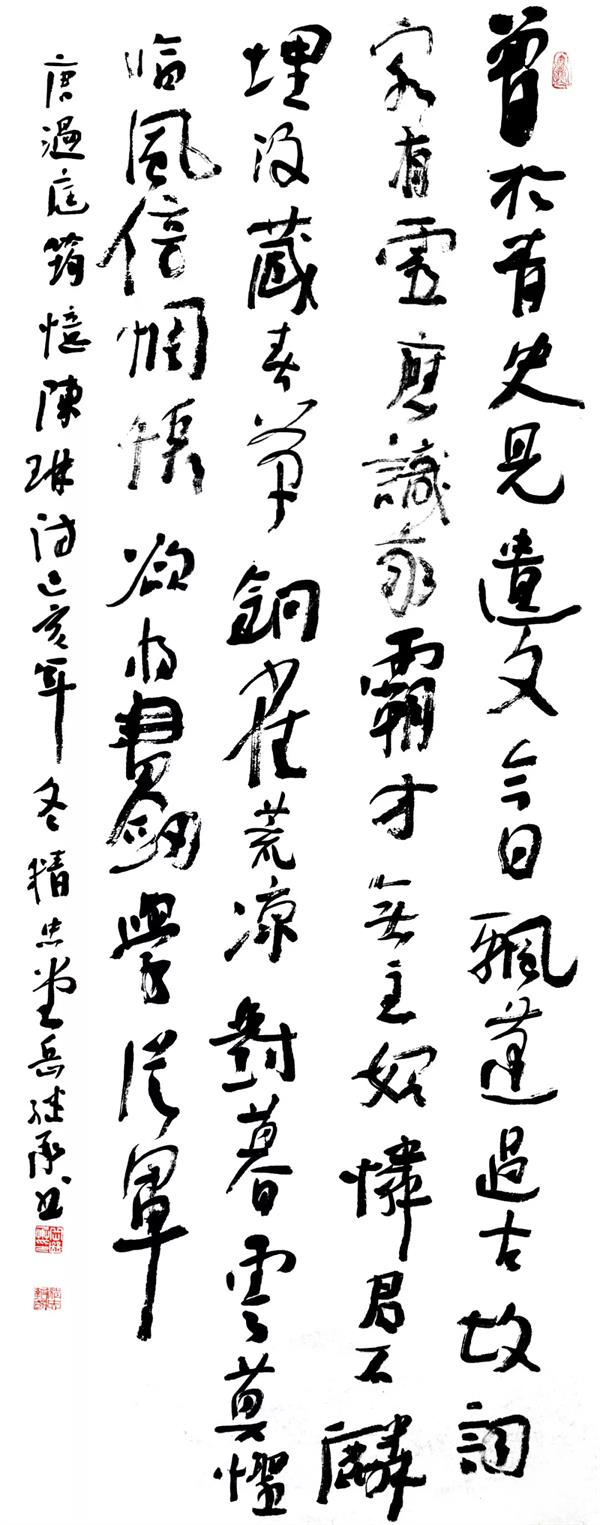 曾於青史見遺文今日飄蓬過古坆詞
客有靈應識我霸才無主始憐君石麟
埋没藏春草銅雀荒凉對暮雲莫怪
臨風倍惆悵欲将書劍學從軍
唐温庭筠憶陳琳詩己亥年冬精忠堂岳继承书